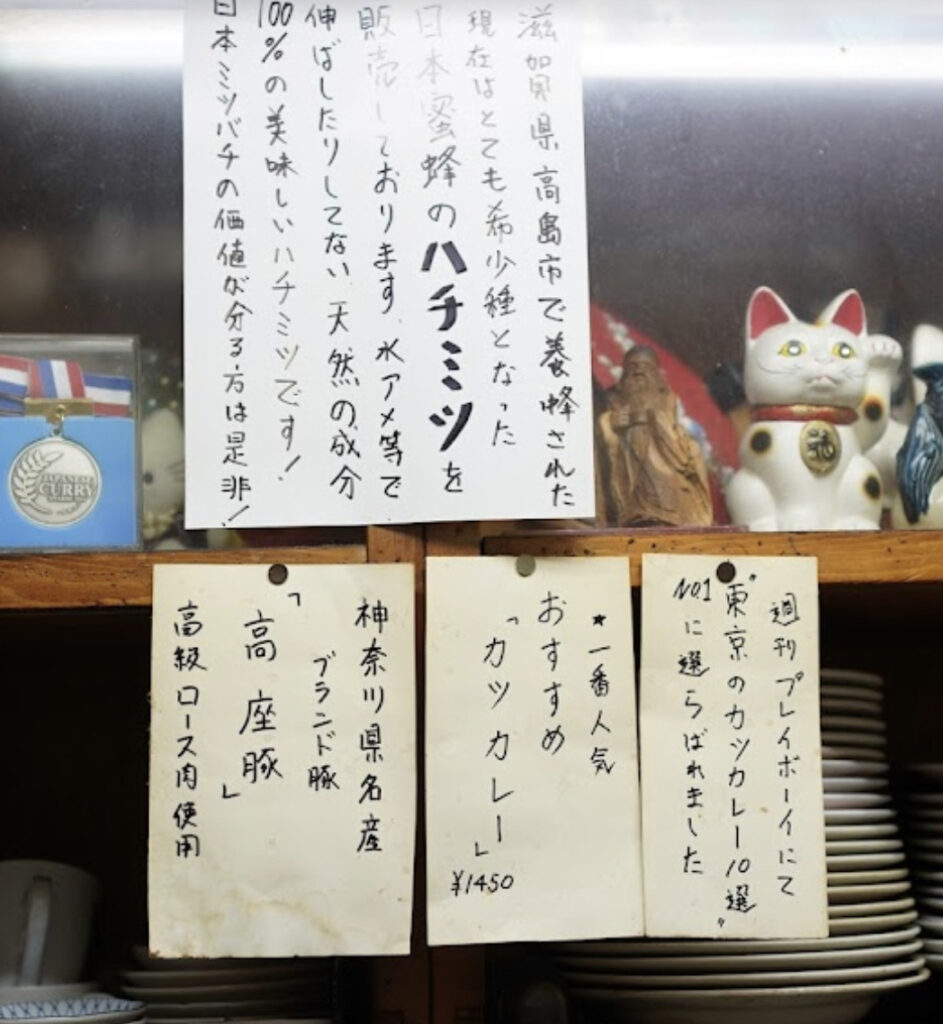 滋賀県高島市で養蜂された
現在はとても希少種となった
日本蜜蜂のハチミツを
販売しております。水アメ等で
伸ばしたりしてない天然の成分
100%の美味しいハチミツです!
日本ミツバチの価値が分る方は是非!
JAPANESE
CURRY
週刊プレイボーイにて
"東京のカツカレー10選"
No1に選らばれました
★一番人気
おすすめ
「カツカレー」
¥1450
神奈川県名産
ブランド豚
「高座豚」
高級ロース肉使用